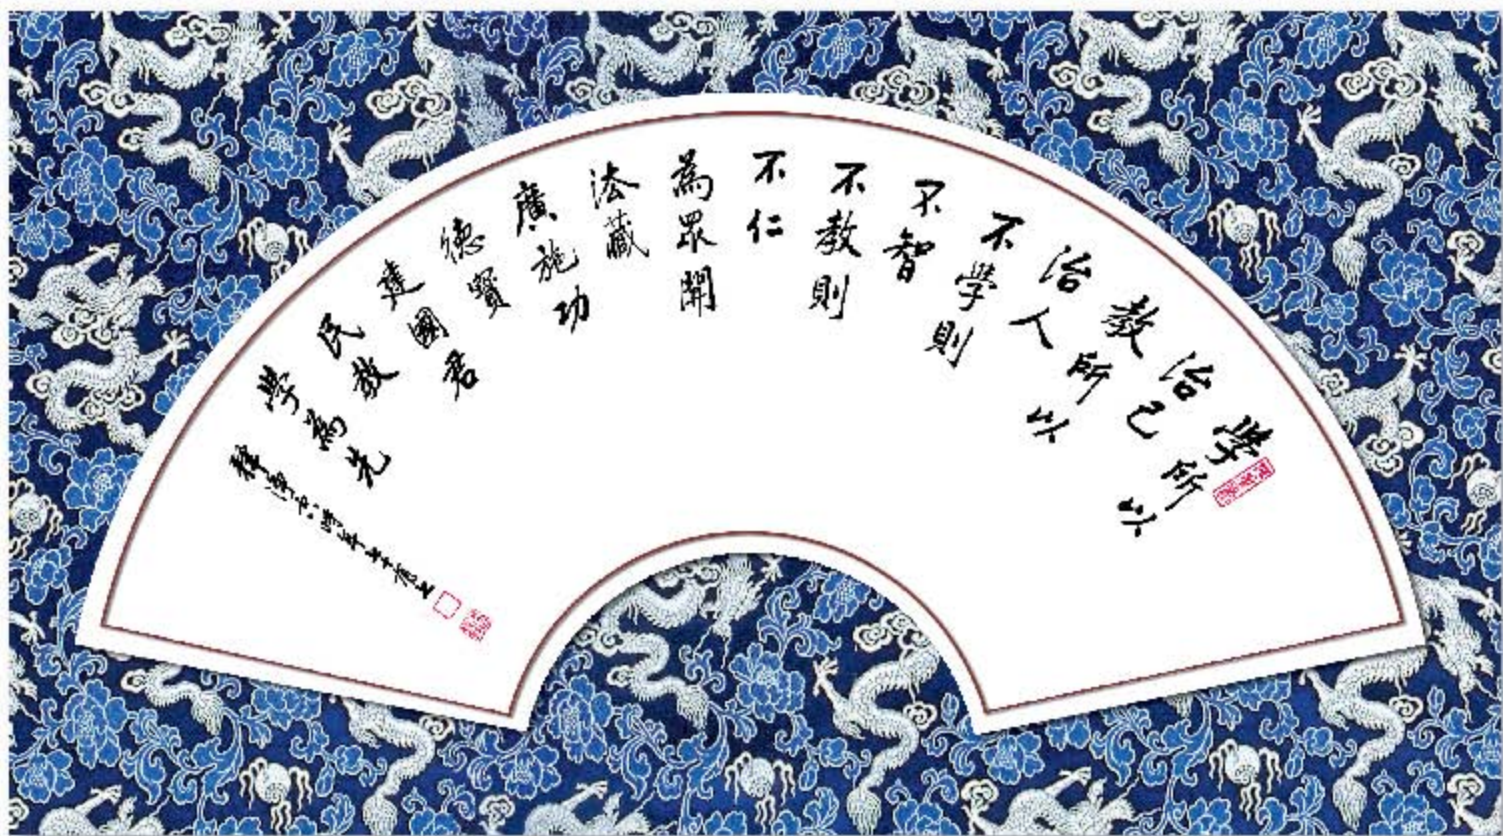 學所以
治己所以
教
治人所以
不學則
不智
不教則
不仁
為眾開
法藏
廣施功
德寶
建國君
民教
學為先